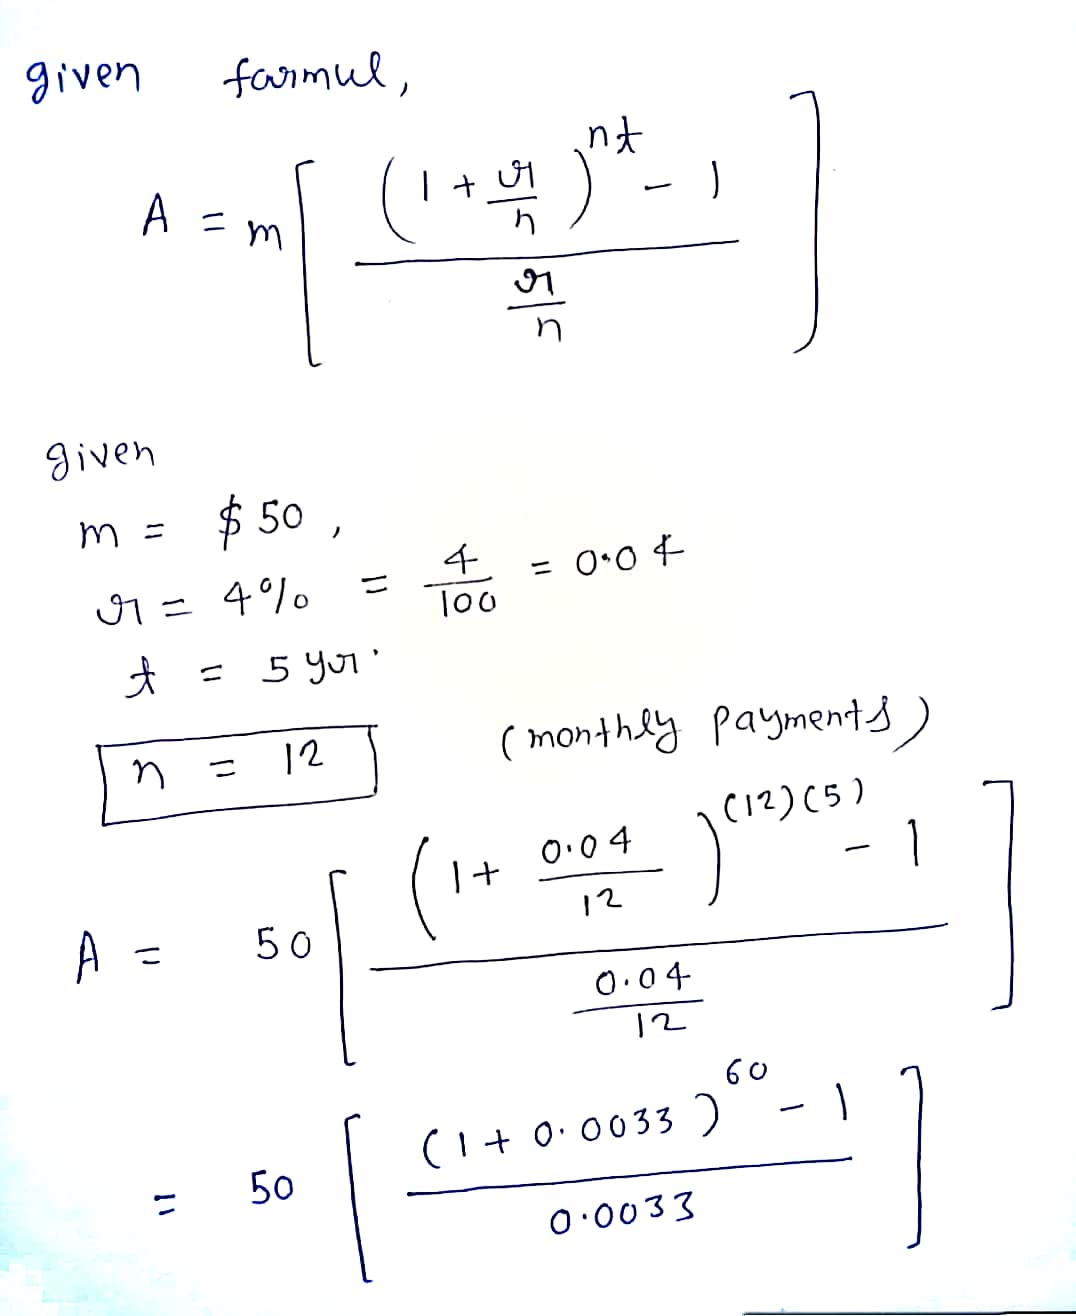 given farmul,
A = m [ ( 1 + r/n )^nt - 1 / r/n ]
given
m = $ 50 ,
r = 4% = 4/100 = 0.04
t = 5 yr.
n = 12 (monthly payments)
A = 50 [ ( 1+ 0.04/12 )^(12)(5) - 1 / 0.04/12 ]
= 50 [ (1 + 0.0033 )^60 - 1 / 0.0033 ]